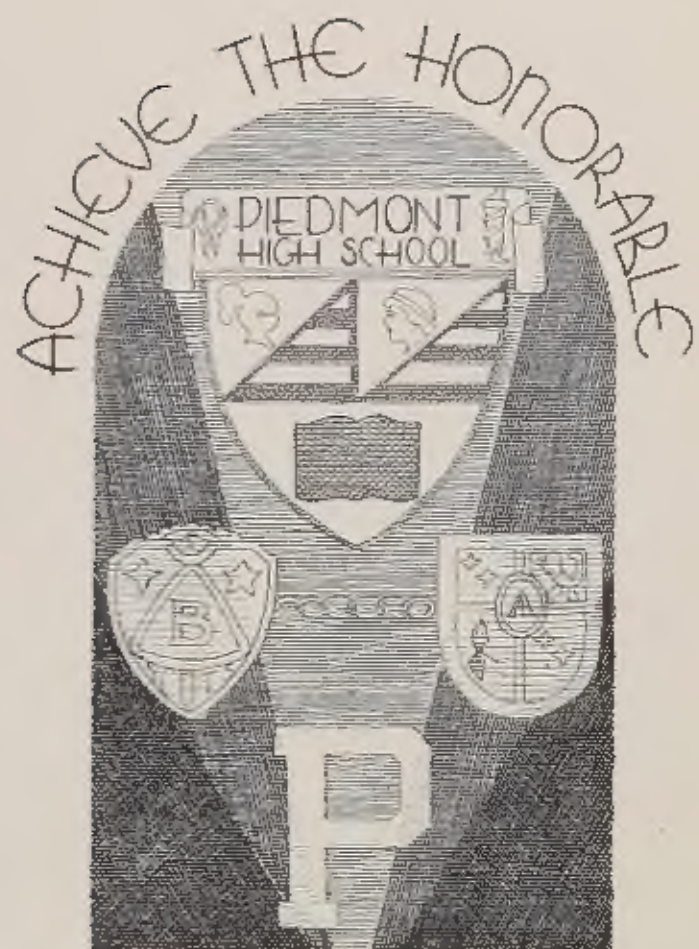 ACHIEVE THE HONORABLE
PIEDMONT
HIGH SCHOOL
B
A
P